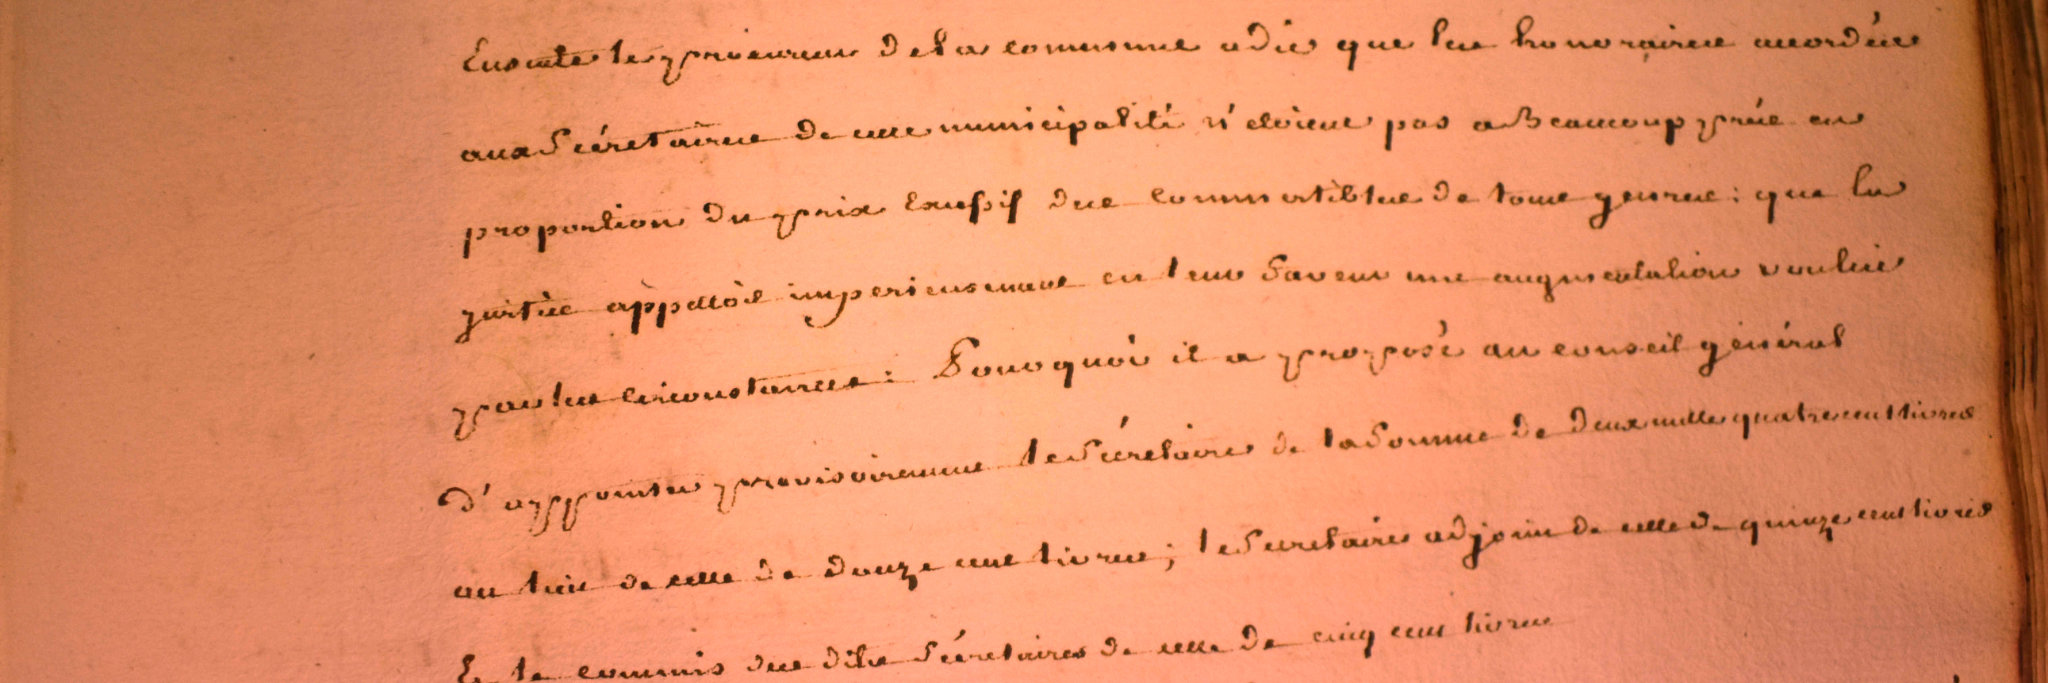 Ensuite le procureur de la commune a dit que les honoraires accordés
aux Sécretaires de cette municipalité n'etoient pas a Beaucoup près en
proportion du prix Excessif des Commestibles de tout genre : que la
justice appelloit imperieusement en leur faveur une augmentation voulue
par les circonstances : Pourquoi il a proposé au conseil général
d'appointer provisoirement le Sécretaire de la Somme de deux mille quatre cent livres
au lieu de celle de douze cent livres ; le Secretaire adjoint de celle de quinze cent livres
Et le Commis des dits Sécretaires de celle de cinq cent livres